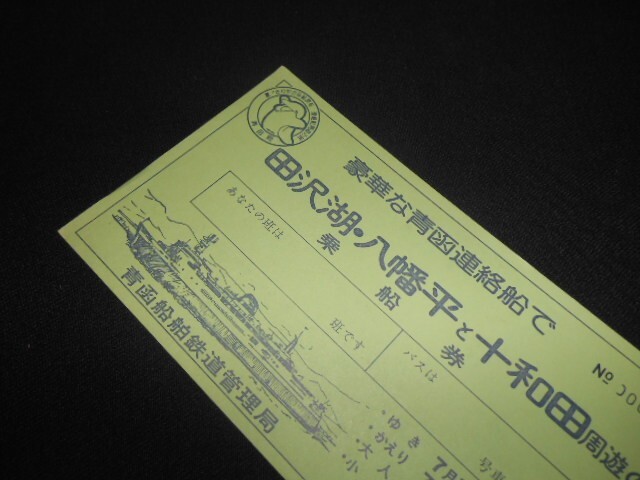 豪華な青函連絡船で
田沢湖・八幡平と十和田周遊の
乗船券
No 00
あなたの班は
班です
バスは
号車
・ゆき 7月
・かえり 7
・大人
・小
青函船舶鉄道管理局